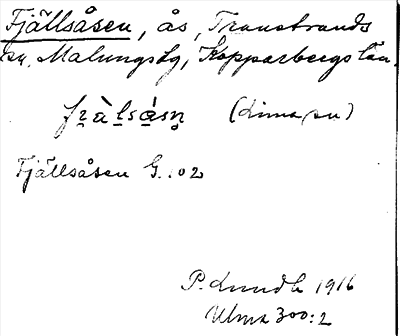 Fjällsåsen, ås, Transtrands
sn, Malungs tg, Kopparbergs län.
(Lima sn)
Fjällsåsen G.:02
P. Lundh 1916
Ulma 300:2